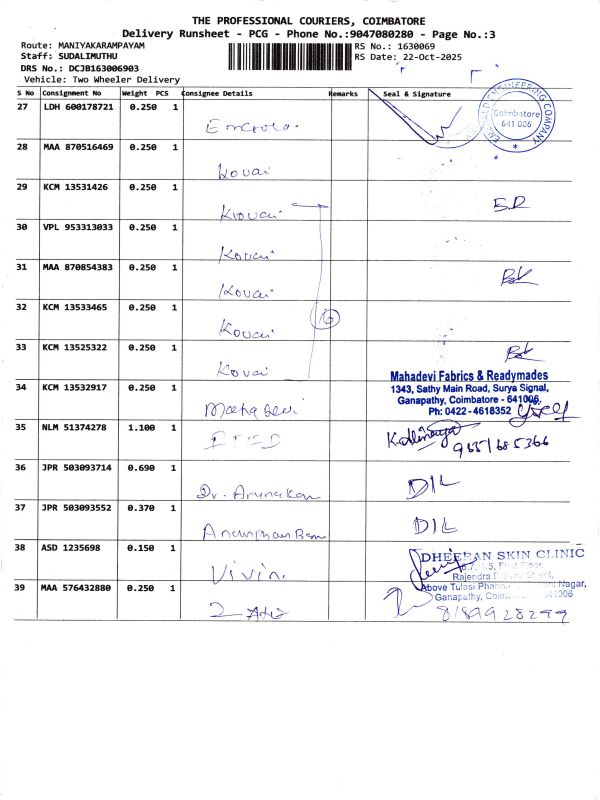 THE PROFESSIONAL COURIERS, COIMBATORE
Delivery Runsheet - PCG - Phone No.:9047080280 - Page No.:3
Route: MANIYAKARAMPAYAM
RS No.: 1630069
Staff: SUDALIMUTHU
RS Date: 22-Oct-2025
DRS No.: DCJB163006903
Vehicle: Two Wheeler Delivery
S No Consignment No Weight PCS Consignee Details Remarks Seal & Signature
27 LDH 600178721 0.250 1
ENGINEERING COMPANY
Coimbatore
641 006
28 MAA 870516469 0.250 1
Kovai
29 KCM 13531426 0.250 1
Kovai
30 VPL 953313033 0.250 1
Kovai
31 MAA 870854383 0.250 1
Kovai
32 KCM 13533465 0.250 1
Kovai
6
33 KCM 13525322 0.250 1
Kovai
34 KCM 13532917 0.250 1
Mahadevi Fabrics & Readymades
1343, Sathy Main Road, Surya Signal,
Ganapathy, Coimbatore - 641006.
Ph: 0422 - 4618352
Maha devi
35 NLM 51374278 1.100 1
36 JPR 503093714 0.690 1
DIL
37 JPR 503093552 0.370 1
DIL
38 ASD 1235698 0.150 1
Vivin.
DHEERAN SKIN CLINIC
39 MAA 576432880 0.250 1
Above Tulasi
Nagar,
Ganapathy,